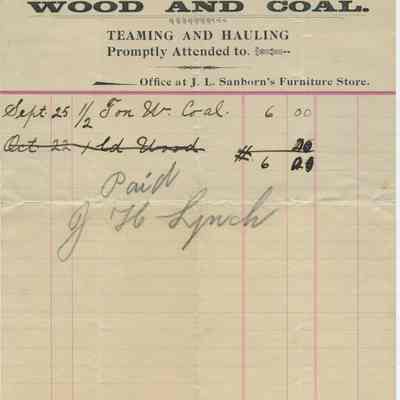 WOOD AND COAL.
TEAMING AND HAULING
Promptly Attended to.
Office at J. L. Sanborn's Furniture Store.
Sept. 25 1/2 Ton W. Coal. 6 00
Oct 22 1 Ld Wood
# 6 00
Paid
J H Lynch